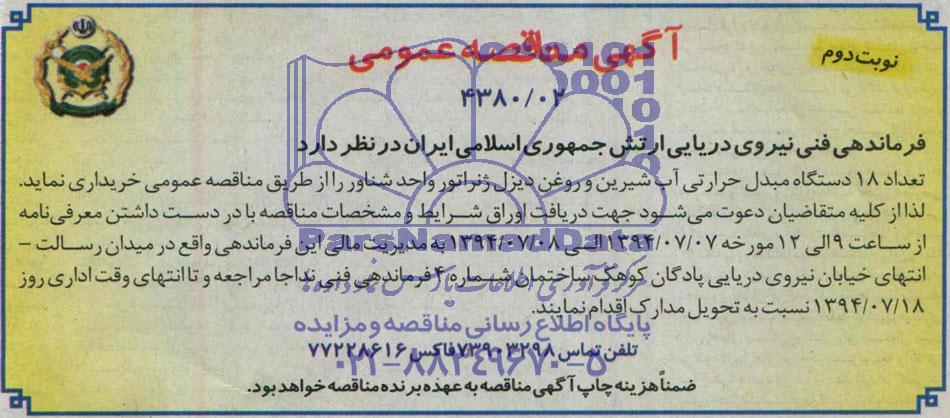 نوبت دوم
آگهی مناقصه عمومی
۴۳۸۰/۰۲
فرماندهی فنی نیروی دریایی ارتش جمهوری اسلامی ایران در نظر دارد
تعداد ۱۸ دستگاه مبدل حرارتی آب شیرین و روغن دیزل ژنراتور واحد شناور را از طریق مناقصه عمومی خریداری نماید.
لذا از کلیه متقاضیان دعوت می‌شود جهت دریافت اوراق شرایط و مشخصات مناقصه با در دست داشتن معرفی‌نامه
از ساعت ۹ الی ۱۲ مورخه ۱۳۹۴/۰۷/۰۷ الی ۱۳۹۴/۰۷/۰۸ به مدیریت مالی این فرماندهی واقع در میدان رسالت -
انتهای خیابان نیروی دریایی پادگان کوهک ساختمان شماره ۴ فرماندهی فنی نداجا مراجعه و تا انتهای وقت اداری روز
۱۳۹۴/۰۷/۱۸ نسبت به تحویل مدارک اقدام نمایند.
ParsNamadData
پایگاه اطلاع رسانی مناقصه و مزایده
تلفن تماس ۷۳۹۰۳۲۹۸ فاکس ۷۷۲۲۸۶۱۶
۰۲۱-۸۸۳۴۹۶۷۰-۵
ضمناً هزینه چاپ آگهی مناقصه به عهده برنده مناقصه خواهد بود.